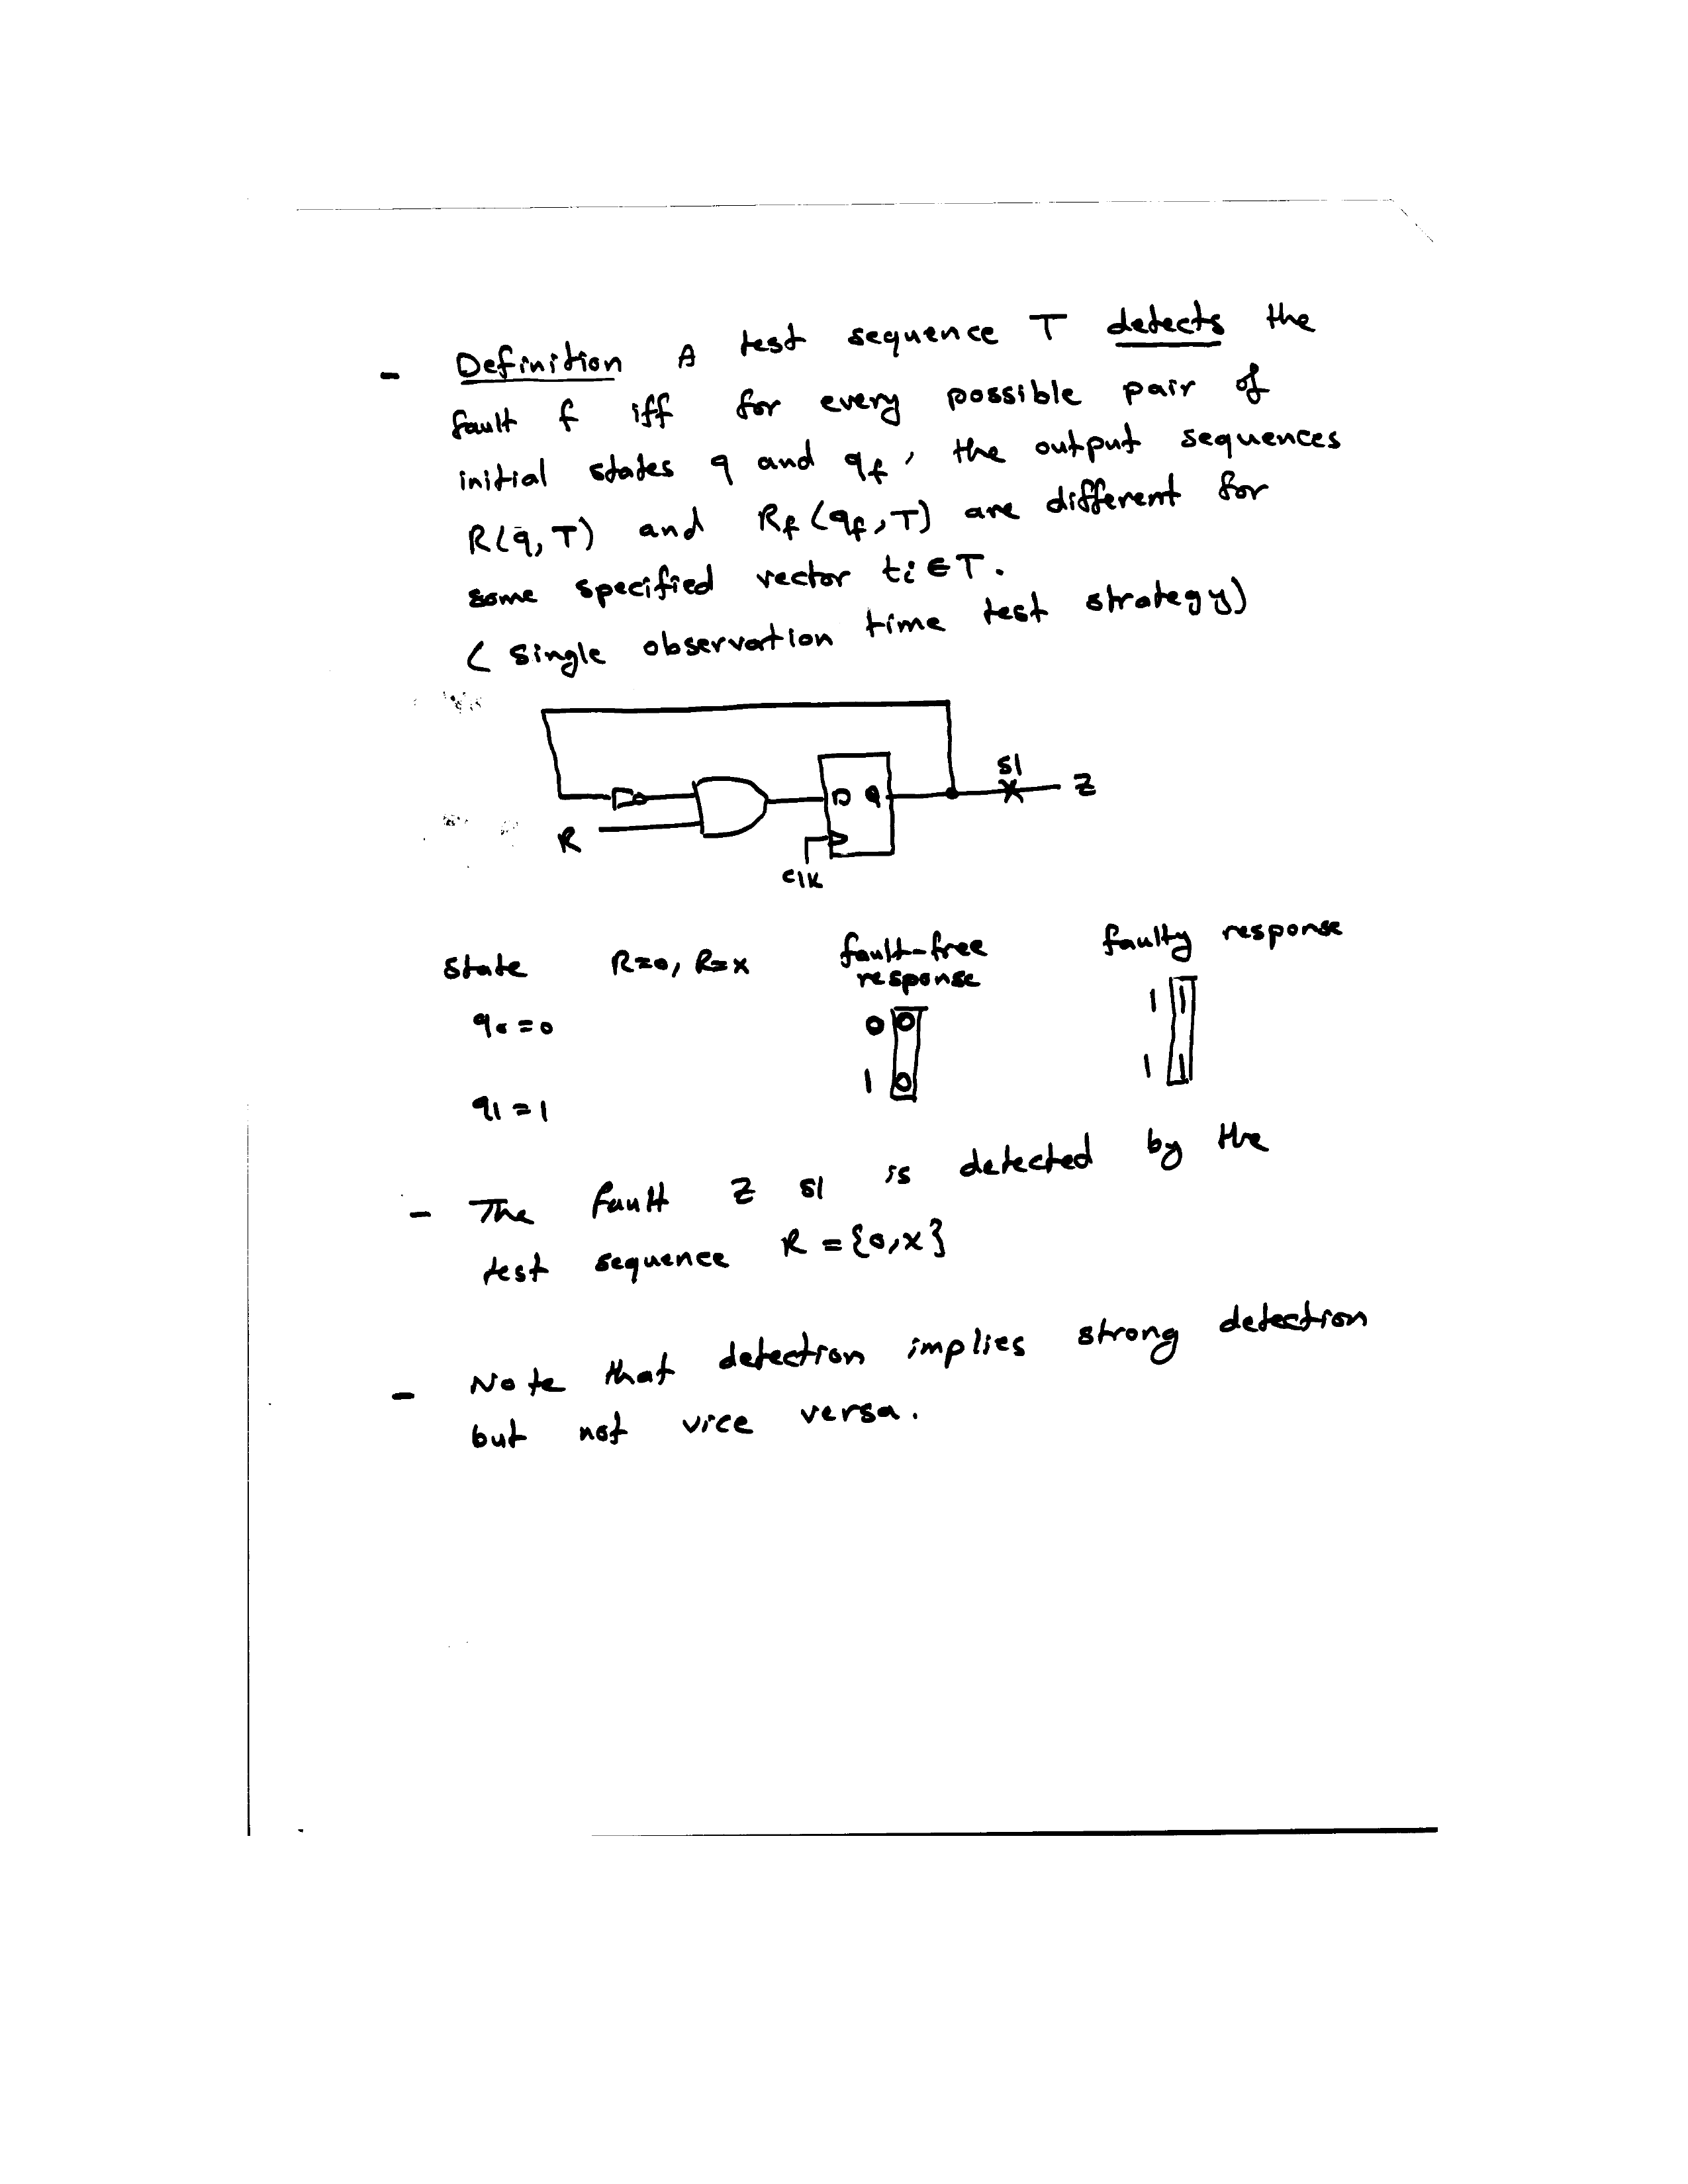 - Definition A test sequence T detects the
fault f iff for every possible pair of
initial states q and qf, the output sequences
R(q,T) and Rf(qf,T) are different for
some specified vector ti ∈ T.
(Single observation time test strategy)
S1
D Q Z
R
Clk
State R=0, R=x fault-free response faulty response
q0=0 0 0 1 1
1 0 1 1
q1=1
- The fault Z s1 is detected by the
test sequence R = {0,x}
- Note that detection implies strong detection
but not vice versa.